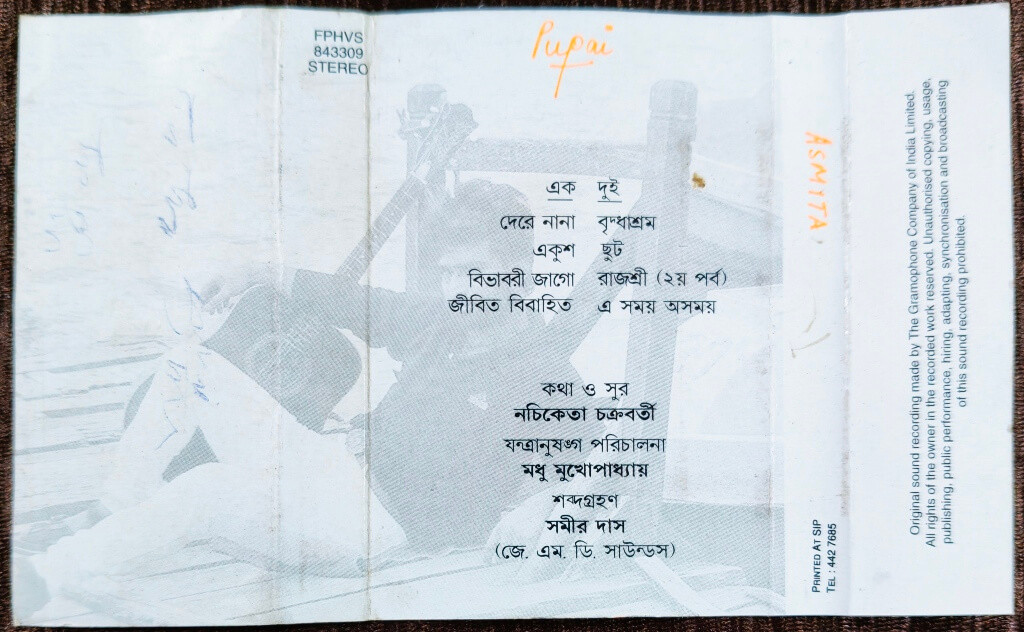 FPHVS
843309
STEREO
Pupai
এক দুই
দেরে নানা বৃদ্ধাশ্রম
একুশ ছুট
বিভাবরী জাগো রাজশ্রী (২য় পর্ব)
জীবিত বিবাহিত এ সময় অসময়
কথা ও সুর
নচিকেতা চক্রবর্তী
যন্ত্রানুষঙ্গ পরিচালনা
মধু মুখোপাধ্যায়
শব্দগ্রহণ
সমীর দাস
(জে. এম. ডি. সাউন্ডস)
ASMITA
PRINTED AT SIP
TEL : 442 7685
Original sound recording made by The Gramophone Company of India Limited.
All rights of the owner in the recorded work reserved. Unauthorised copying, usage,
publishing, public performance, hiring, adapting, synchronisation and broadcasting
of this sound recording prohibited.